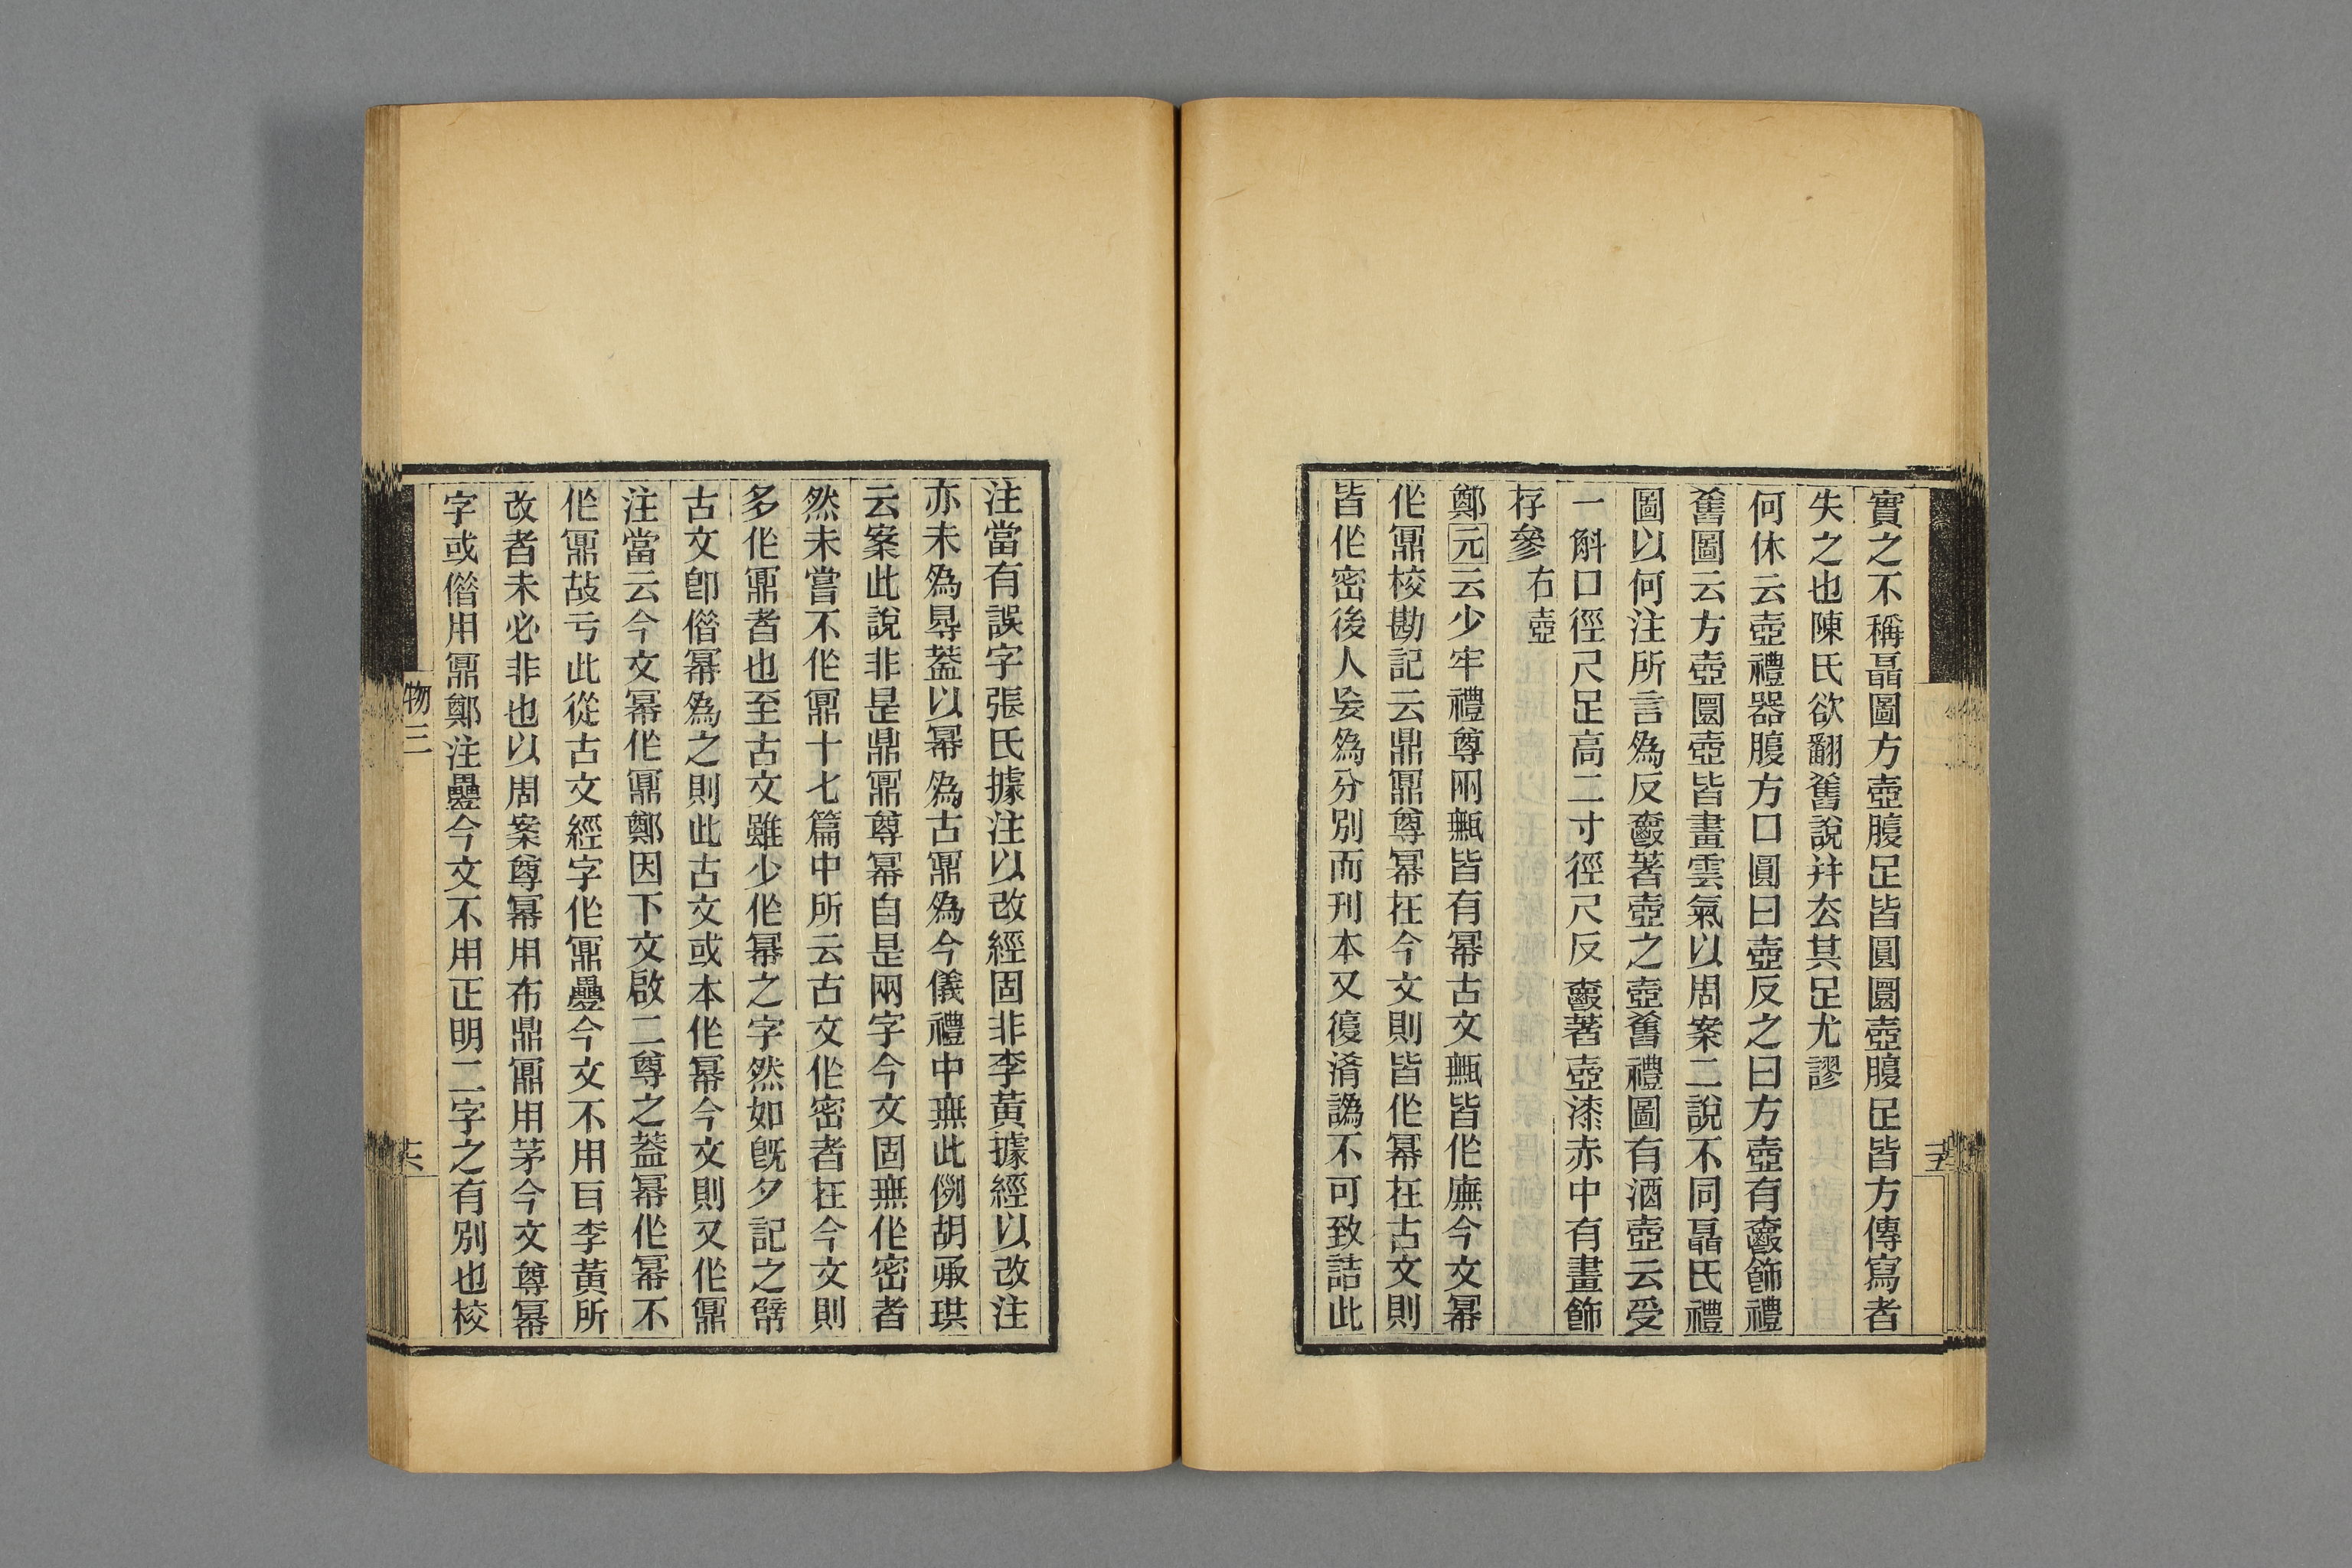 實之不稱聶圖方壺腹足皆圓圜壺腹足皆方傳寫者
失之也陳氏欲翻舊說并厺其足尤謬
何休云壺禮器腹方口圓曰壺反之曰方壺有爵飾禮
舊圖云方壺圜壺皆畫雲氣以周案二說不同聶氏禮
圖以何注所言為反爵著壺之壺舊禮圖有酒壺云受
一斛口徑尺足高二寸徑尺反爵著壺漆赤中有畫飾
存參 右壺
鄭元云少牢禮尊兩甒皆有冪古文甒皆作廡今文冪
作鼏校勘記云鼎鼏尊冪在今文則皆作冪在古文則
皆作密後人妄為分別而刊本又復淆譌不可致詰此
注當有誤字張氏據注以改經固非李黃據經以改注
亦未為㝵葢以冪為古鼏為今儀禮中無此例胡承珙
云案此說非是鼎鼏尊冪自是兩字今文固無作密者
然未嘗不作鼏十七篇中所云古文作密者在今文則
多作鼏者也至古文雖少作冪之字然如旣夕記之幦
古文卽偕冪為之則此古文或本作冪今文則又作鼏
注當云今文冪作鼏鄭因下文啟二尊之葢冪作冪不
作鼏故亏此從古文經字作鼏疊今文不用㠯李黃所
改者未必非也以周案尊冪用布鼎鼏用茅今文尊冪
字或偕用鼏鄭注疊今文不用正明二字之有別也校
物三
十六
十五